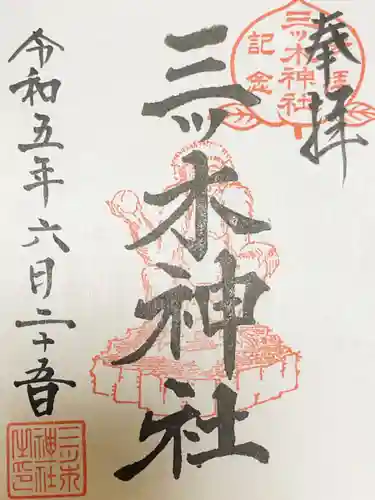 奉拝
三ッ木神社
参拝
記念
三ッ木神社
令和五年六月二十五日
三ツ木
神社
之印